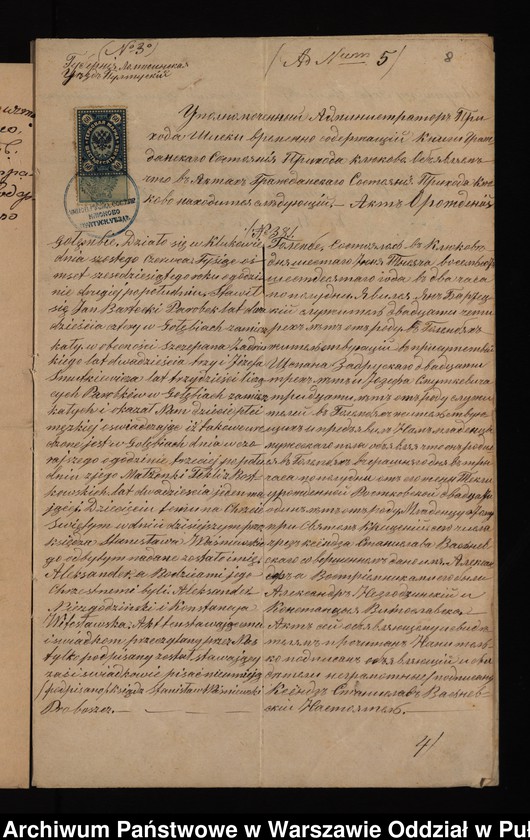 (No 3o)
Губернія Ломжинская
Уѣздъ Пултускій
(Ad Num 5)
8
Уполномоченный Администраторъ При-
хода Клюково временно содержащій книги Граж-
данскаго Состоянія Прихода Клюково Объявляетъ
что въ Актахъ Гражданскаго Состоянія Прихода Клю-
ково находится слѣдующій — Актъ
No 38
Gołembie, działo się w Klukowie
dnia szóstego Czerwca Tysiąc os
mset sześdziesiątego roku o godzi
nie drugiéj popołudniu, Stawił
się Jan Bartocki Parobek lat dwa
dzieścia cztery w Gołębiach zamiesz
kały w obecności Szczepana Zadro
kiego lat dwadzieścia trzy i Józefa
Smutkiewicza lat trzydzieści liczą
cych Parobków w Gołębiach zamiesz
kałych i okazał Nam dziecię płci
męzkiej oświadczając iż takowe uro
dzone jest w Gołębiach dnia wczo
rajszego o godzinie trzeciej popołu
dniu z jego Małżonki Tekli z Rost
kowskich lat dwadzieścia jeden ma
jącéj. Dziecięciu temu na Chrzcie
Swiętym w dniu dzisiejszym przez
księdza Stanisława Waśniewskie
go odbytym nadane zostało imię
Aleksander, a Rodzicami jego
Chrzestnemi byli Aleksander
Niezgodziński i Konstancja
Witosławska. Akt ten stawającemu
i świadkom przeczytany przez Nas
tylko podpisany został, stawający
zaś i świadkowie pisać nieumieją
/podpisano/ Ksiądz Stanisław Waśniewski
Proboszcz. —
Голембе, Состоялось въ Клюковѣ
дня шестаго Іюня Тысяча восемьсотъ
шестдесятаго года въ два часа
по полудни. Явился Янъ Бартоц-
кій служитель двадцати четы
рехъ лѣтъ отъ роду, въ Голембяхъ
жительствующій, въ присутствіи
Щепана Задроцкаго двадцати
трехъ лѣтъ и Іозефа Смуткевича
тридцати лѣтъ отъ роду служи
телей въ Голембяхъ жительствую
щихъ и предъявилъ Намъ младенца
мужескаго пола объявляя что онъ родил
ся въ Голембяхъ вчерашняго дня въ три
часа по полудни отъ его жены Теклы
урожденной Ростковской двадцати
одинъ лѣтъ отъ роду. Младенцу этому
при Святомъ Крещеніи сего числа
чрезъ ксендза Станислава Васнев
скаго совершенномъ дано имя Алексан
дръ а Воспріемниками его были
Александръ Незгодзинскій и
Констанція Витославска.
Актъ сей объявляющему и свидѣ
телямъ прочитанъ Нами толь
ко подписанъ, объявляющій и сви
дѣтели неграмотные /подписалъ/
Ксендзъ Станиславъ Васнев-
скій Настоятель.
4/
Archiwum Państwowe w Warszawie Oddział w Puł